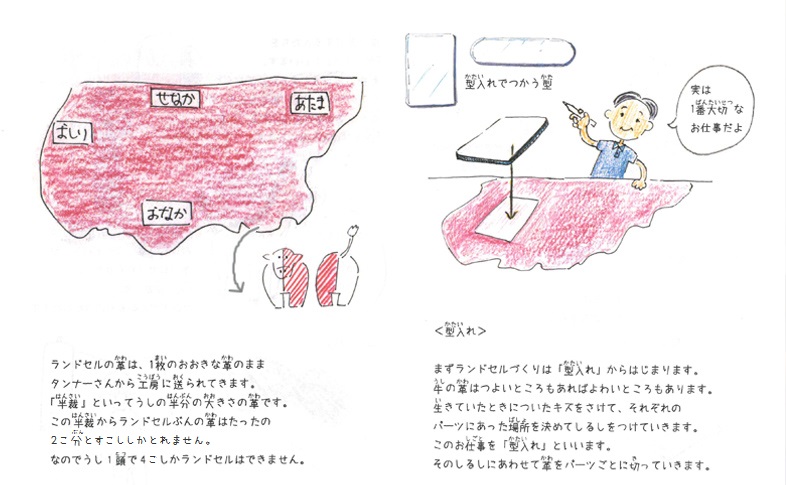 せなか
あたま
おしり
おなか
ランドセルの革は、1枚のおおきな革のまま
タンナーさんから工房に送られてきます。
「半裁」といってうしの半分の大きさの革です。
この半裁からランドセルぶんの革はたったの
2こ分とすこししかとれません。
なのでうし1頭で4こしかランドセルはできません。
型入れでつかう型
実は
1番大切な
お仕事だよ
<型入れ>
まずランドセルづくりは「型入れ」からはじまります。
牛の革はつよいところもあればよわいところもあります。
生きていたときについたキズをさけて、それぞれの
パーツにあった場所を決めてしるしをつけていきます。
このお仕事を「型入れ」といいます。
そのしるしにあわせて革をパーツごとに切っていきます。